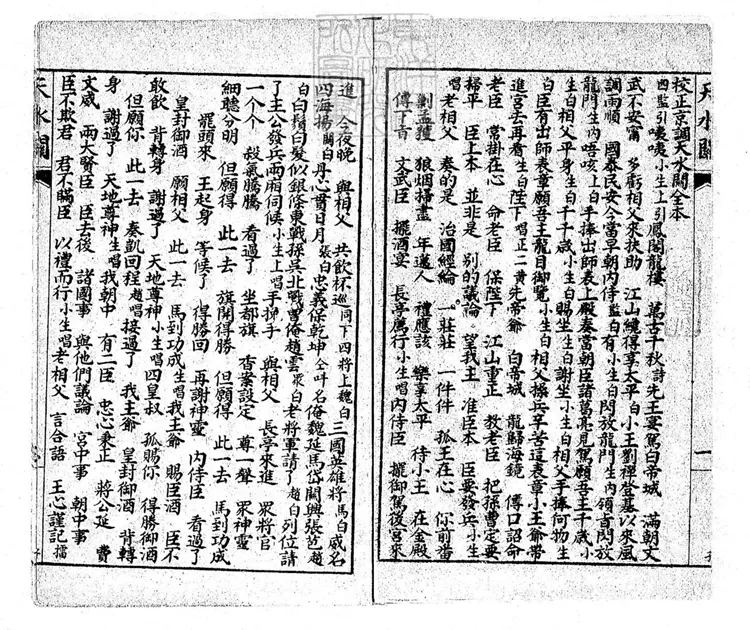 校正京調天水關全本
四監引咦咦小生上引鳳閣龍樓 萬古千秋詩先王宴駕白帝城 滿朝文
武不安甯 多虧相父來扶助 江山纔得享太平白小王劉禪登基以來風
調雨順 國泰民安今當早朝內侍監白有小生白閃放龍門生內領旨閃放
龍門生內唔咳上白手捧出師表上殿奏當朝臣諸葛亮見駕願吾王千歲小
生白相父平身生白千千歲小生白賜坐生白謝坐小生白相父手捧何物生
白臣有出師表章願吾王龍目御覽小生白相父操兵辛苦這表章小王爺帶
進宮去再看生白陛下唱正二黃先帝爺 白帝城 龍歸海鏡 傳口詔命
老臣 常掛在心 命老臣 保陛下 江山重正 教老臣 把孫曹定要
掃平 臣上本 並非是 別的議論 望我主 准臣本 臣要發兵小生
唱老相父 奏的是 治國經綸 一莊莊 一件件 孤王在心 你前番
剿孟獲 狼烟掃盡 年邁人 禮應該 樂享太平 待小王 在金殿
傳下旨 文武臣 擺酒宴 長亭厲行小生唱內侍臣 擺御駕後宮來
進 今夜晚 與相父 共飲杯巡同下四將上魏白三國英雄將馬白威名
四海揚關白丹心貫日月張白忠義保乾坤仝呌名俺魏延馬岱關興張苞趙
白白鬚白髮似銀條東戰孫吳北戰曹俺趙雲眾白老將軍請了趙白列位請
了主公發兵兩廂伺候小生上唱手挽手 與相父 長亭來進 眾將官
一个个 殺氣騰騰 看過了 坐都旗 香案設定 尊一聲 眾神靈
細聽分明 但願得 此一去 旗開得勝 但願得 此一去 馬到功成
罷頭來 王起身 等候了 得勝回 再謝神靈 內侍臣 看過了
皇封御酒 願相父 此一去 馬到功成生唱我王爺 賜臣酒 臣不
敢飲 背轉身 謝過了 天地尊神小生唱四皇叔 孤賜你 得勝御酒
但願你 此一去 奏凱回程趙唱接過了 我主爺 皇封御酒 背轉
身 謝過了 天地尊神生唱我朝中 有二臣 忠心秉正 蔣公延 費
文威 兩大賢臣 臣去後 諸國事 與他們議論 宮中事 朝中事
臣不欺君 君不瞞臣 以禮而行小生唱老相父 言合語 王心謹記擂
天水關
一
天水關